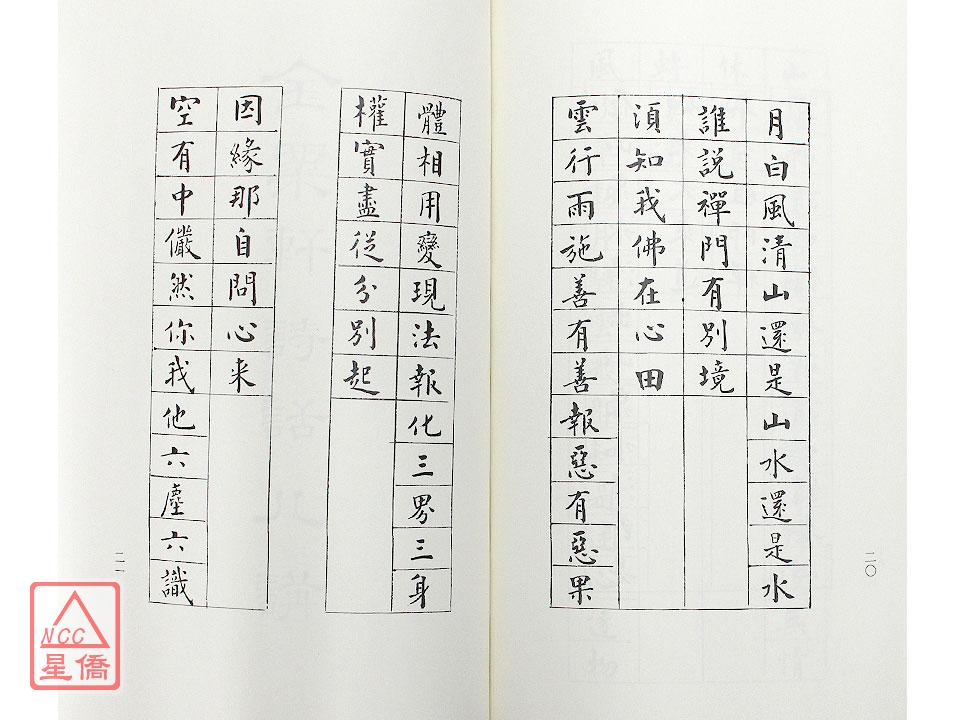 月白風清山還是山水還是水
誰說禪門有別境
須知我佛在心田
雲行雨施善有善報惡有惡果
二〇
體相用變現法報化三界三身
權實盡從分別起
因緣那自問心来
空有中儼然你我他六塵六識
二一
NCC
星僑